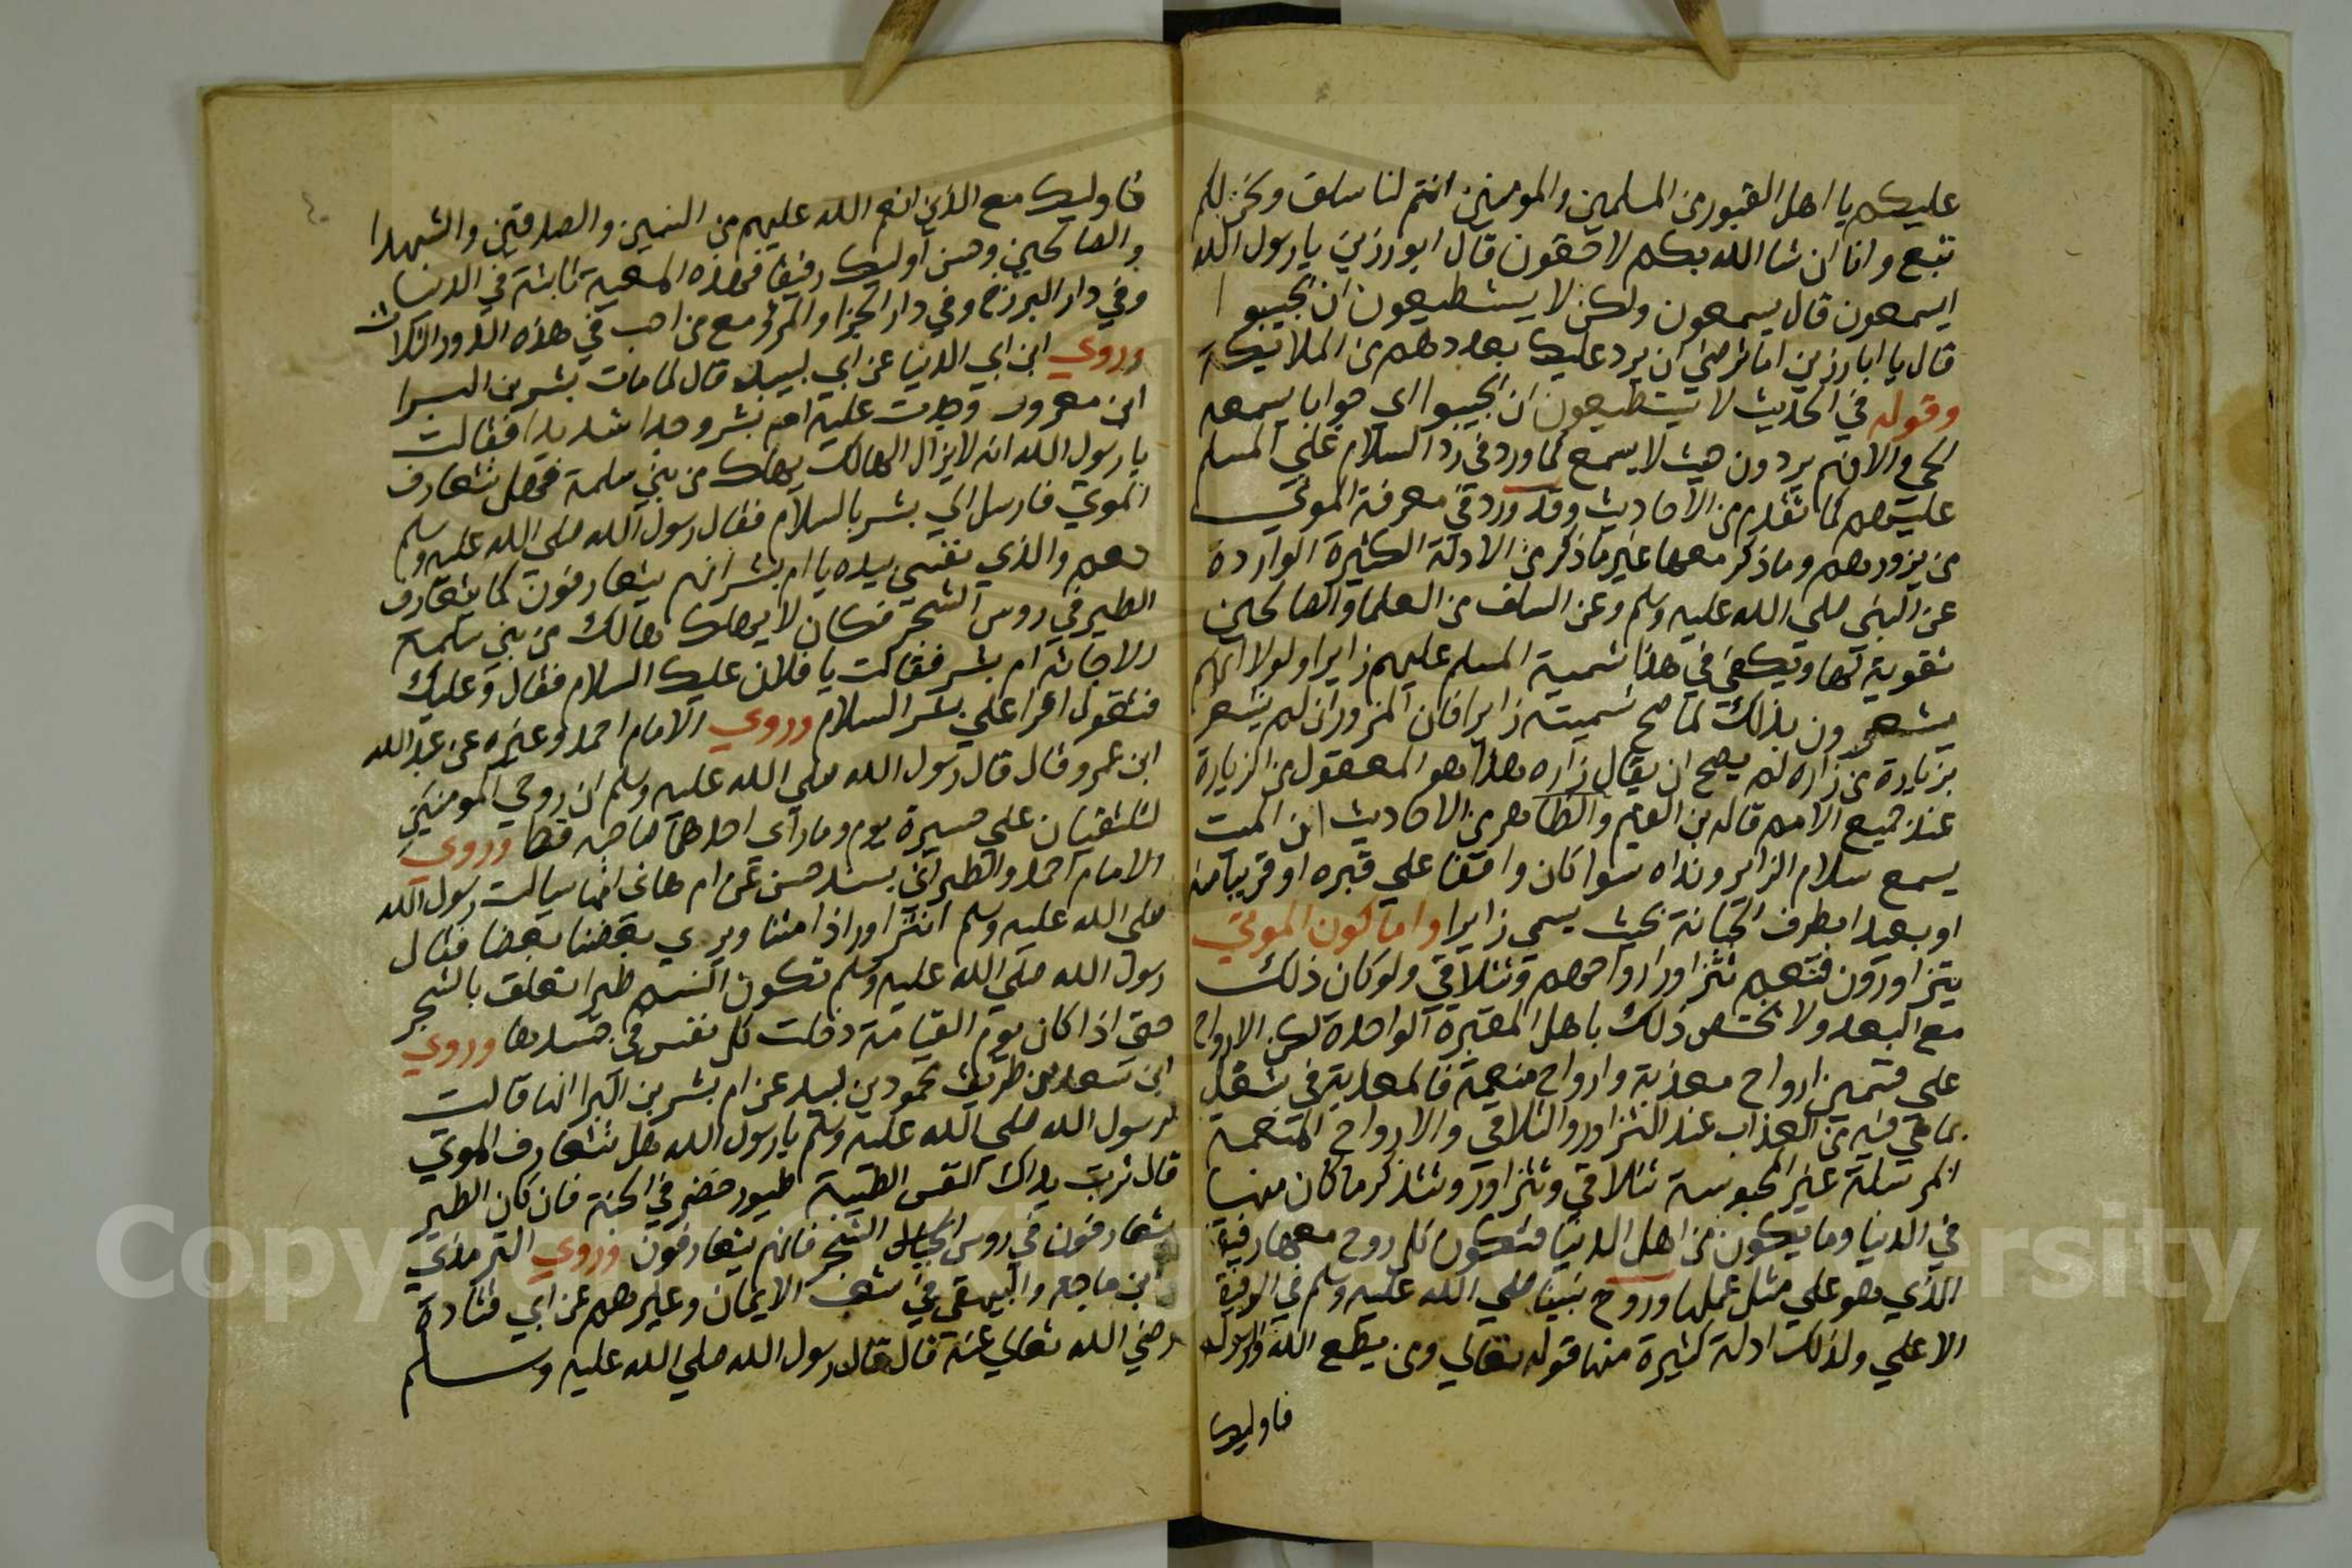 عليكم يا اهل القبور من المسلمين والمومنين انتم لنا سلف ونحن لكم
تبع وانا ان شا الله بكم لاحقون قال ابو رزين يا رسول الله
ايسمعون قال يسمعون ولكن لا يستطيعون ان يجيبوا
قال يا ابا رزين اما ترضى ان يرد عليك بعددهم من الملايكة
وقوله في الحديث لا يستطيعون ان يجيبوا اي جوابا يسمعه
الحي والا فهم يردون حيث لا يسمع كما ورد في رد السلام علي المسلم
عليهم كما تقدم من الاحاديث وقد ورد في معرفة الموتي
من يزورهم وما ذكر معها غير ما ذكر من الادلة الكثيرة الواردة
عن النبي صلي الله عليه وسلم وعن السلف من العلما والصالحين
تقوية لها ويكفي في هذا تسمية المسلم عليهم زايرا ولولا انهم
يشعرون بذلك لما صح تسميته زايرا فان المزور ان لم يشعر
بزيارة من زاره لم يصح ان يقال زاره هذا هو المعقول من الزيارة
عند جميع الامم قاله بن القيم والظاهر من الاحاديث ان الميت
يسمع سلام الزاير ونداه سوا كان واقفا علي قبره او قريبا منه
او بعيدا بطرف الجبانة بحيث يسمي زايرا واما كون الموتي
يتزاورون فنعم تتزاور ارواحهم وتتلاقي ولو كان ذلك
مع البعد ولا يختص ذلك باهل المقبرة الواحدة لكن الارواح
علي قسمين ارواح معذبة وارواح منعمة فالمعذبة في شغل
بما هي فيه من العذاب عند التزاور والتلاقي والارواح المنعمة
المرسلة غير المحبوسة تتلاقي وتتزاور وتتذكر ما كان منها
في الدنيا وما يكون من اهل الدنيا فتكون كل روح مع رفيقها
الذي هو علي مثل عملها وروح نبينا صلي الله عليه وسلم في الرفيق
الاعلي ولذلك ادلة كثيرة منها قوله تعالي ومن يطع الله والرسول
فاوليك
فاوليك مع الذين انعم الله عليهم من النبيين والصديقين والشهدا
والصالحين وحسن اوليك رفيقا فهذه المعية ثابتة في الدنيا
وفي دار البرزخ وفي دار الجزا والمرؤ مع من احب في هذه الدور الثلاث
وروي ابن ابي الدنيا عن ابي لبيبة قال لما مات بشر بن البرا
ابن معرور وجدت عليه ام بشر وجدا شديدا فقالت
يا رسول الله انه لا يزال الهالك يهلك من بني سلمة فهل تتعارف
الموتي فارسل الي بشر بالسلام فقال رسول الله صلي الله عليه وسلم
نعم والذي نفسي بيده يا ام بشر انهم يتعارفون كما يتعارف
الطير في روس الشجر فكان لا يهلك هالك من بني سلمة
الا جاته ام بشر فقالت يا فلان عليك السلام فقال وعليك
فتقول اقرا علي بشر السلام وروي الامام احمد وغيره عن عبد الله
ابن عمرو قال قال رسول الله صلي الله عليه وسلم ان روحي المومنين
لتلتقيان علي مسيرة يوم وما راي احدهما صاحبه قط وروي
الامام احمد والطبراني بسند حسن عن ام هاني انها سالت رسول الله
صلي الله عليه وسلم انتزاور اذا متنا ويري بعضنا بعضا فقال
رسول الله صلي الله عليه وسلم تكون النسم طيرا تعلق بالشجر
حتي اذا كان يوم القيامة دخلت كل نفس في جسدها وروي
ابن سعد من طريق محمود بن لبيد عن ام بشر بن البرا انها قالت
لرسول الله صلي الله عليه وسلم يا رسول الله هل تتعارف الموتي
قال تربت يداك النفس الطيبة طيور خضر في الجنة فان كان الطير
يتعارفون في روس الشجر فانهم يتعارفون وروي الترمذي
وابن ماجه والبيهقي في شعب الايمان وغيرهم عن ابي قتادة
رضي الله تعالي عنه قال قال رسول الله صلي الله عليه وسلم